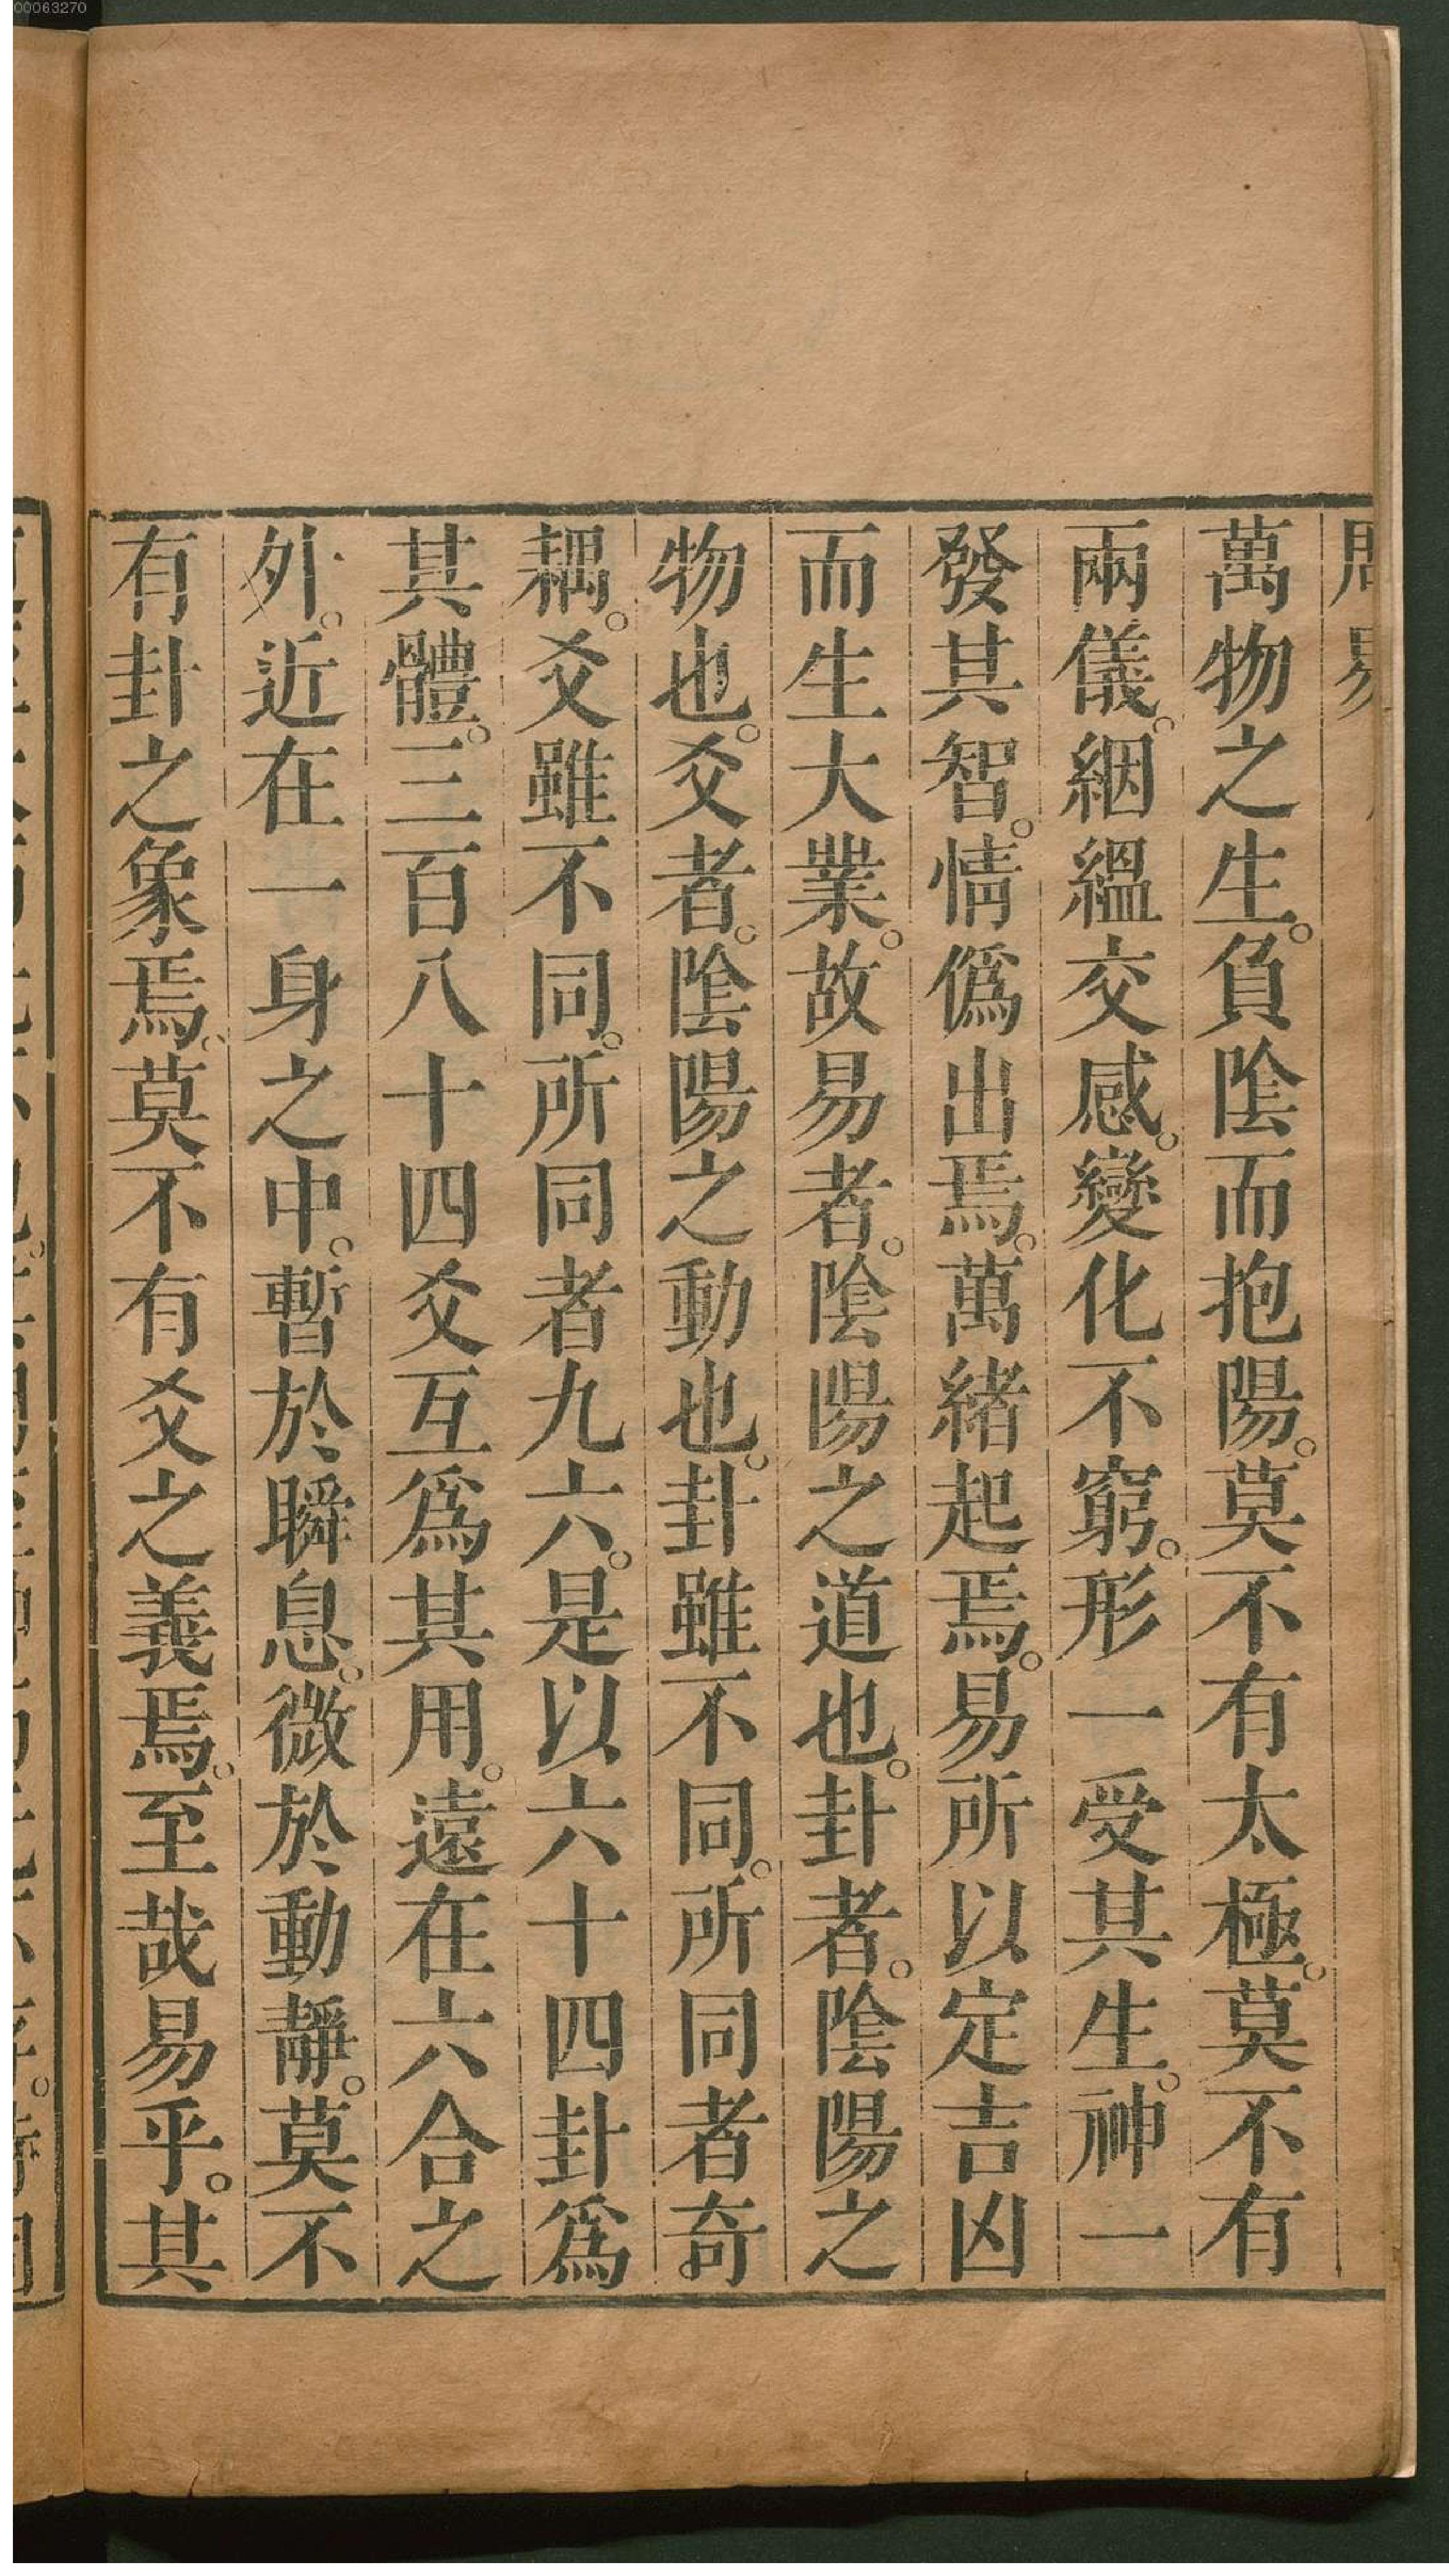 00063270
周易
萬物之生。負隂而抱陽。莫不有太極。莫不有
兩儀。絪縕交感。變化不窮。形一受其生。神一
發其智。情僞出焉。萬緒起焉。易所以定吉凶
而生大業。故易者。隂陽之道也。卦者。隂陽之
物也。爻者。隂陽之動也。卦雖不同。所同者奇
耦。爻雖不同。所同者九六。是以六十四卦爲
其體。三百八十四爻互爲其用。遠在六合之
外。近在一身之中。暫於瞬息。微於動靜。莫不
有卦之象焉。莫不有爻之義焉。至哉易乎。其